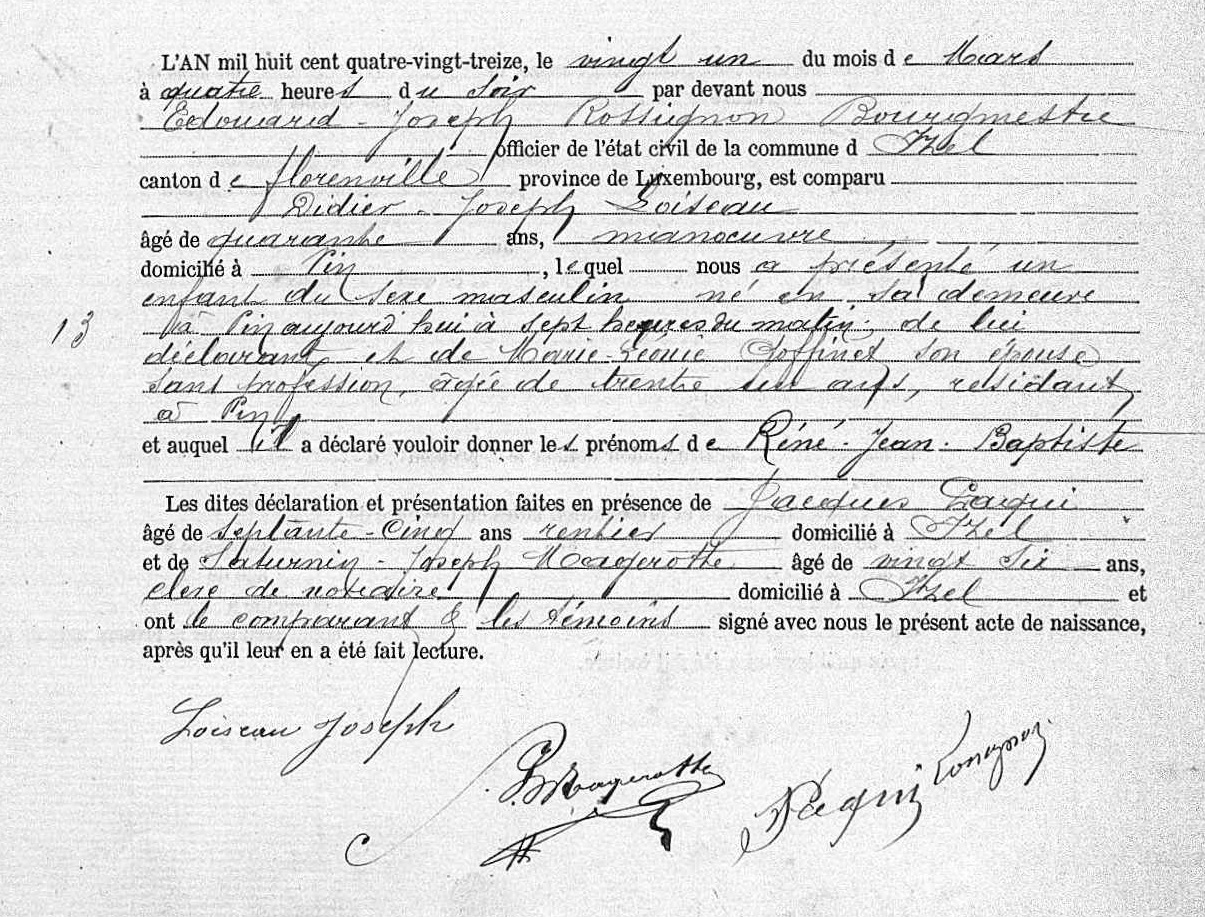 L'AN mil huit cent quatre-vingt-treize, le vingt un du mois de Mars
à quatre heures du soir par devant nous
Edouard-Joseph Rossignon Bourgmestre
officier de l'état civil de la commune d Izel
canton de florenville province de Luxembourg, est comparu
Didier-Joseph Loiseau
âgé de quarante ans, manoeuvre
domicilié à Pin, lequel nous a présenté un
enfant du sexe masculin né en sa demeure
à Pin aujourd'hui à sept heures du matin, de lui
déclarant et de Marie-Léonie Goffinet son épouse
sans profession, âgée de trente six ans, résidant
à Pin
et auquel il a déclaré vouloir donner les prénoms de Réné-Jean-Baptiste
Les dites déclaration et présentation faites en présence de Jacques
13
âgé de septante-cinq ans rentier domicilié à Izel
et de Saturnin-Joseph Magerotte âgé de vingt six ans,
clerc de notaire domicilié à Izel et
ont le comparant & les témoins signé avec nous le présent acte de naissance,
après qu'il leur en a été fait lecture.
Loiseau Joseph
Magerotte